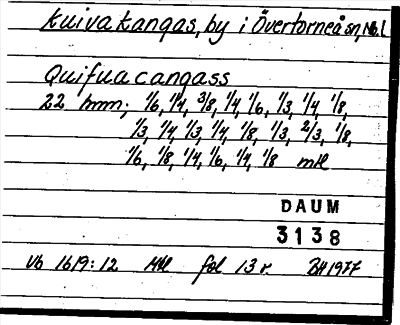 Kuivakangas, by i Övertorneå sn, Nb. l
Quifuacangass
22 hmn; 1/6, 1/4, 3/8, 1/4, 1/6, 1/3, 1/4, 1/8,
1/3, 1/4, 1/3, 1/4, 1/8, 1/3, 2/3, 1/8,
1/6, 1/8, 1/4, 1/6, 1/4, 1/8 mtl
DAUM
3138
Vb 1619:12 Mtl fol 13 r. BH 1977